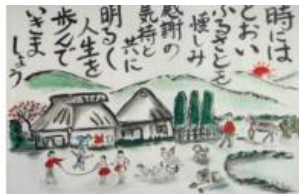 時には
とおい
ふるさとも
懐しみ
感謝の
気持と共に
明るく
人生を
歩んで
いきま
しょう